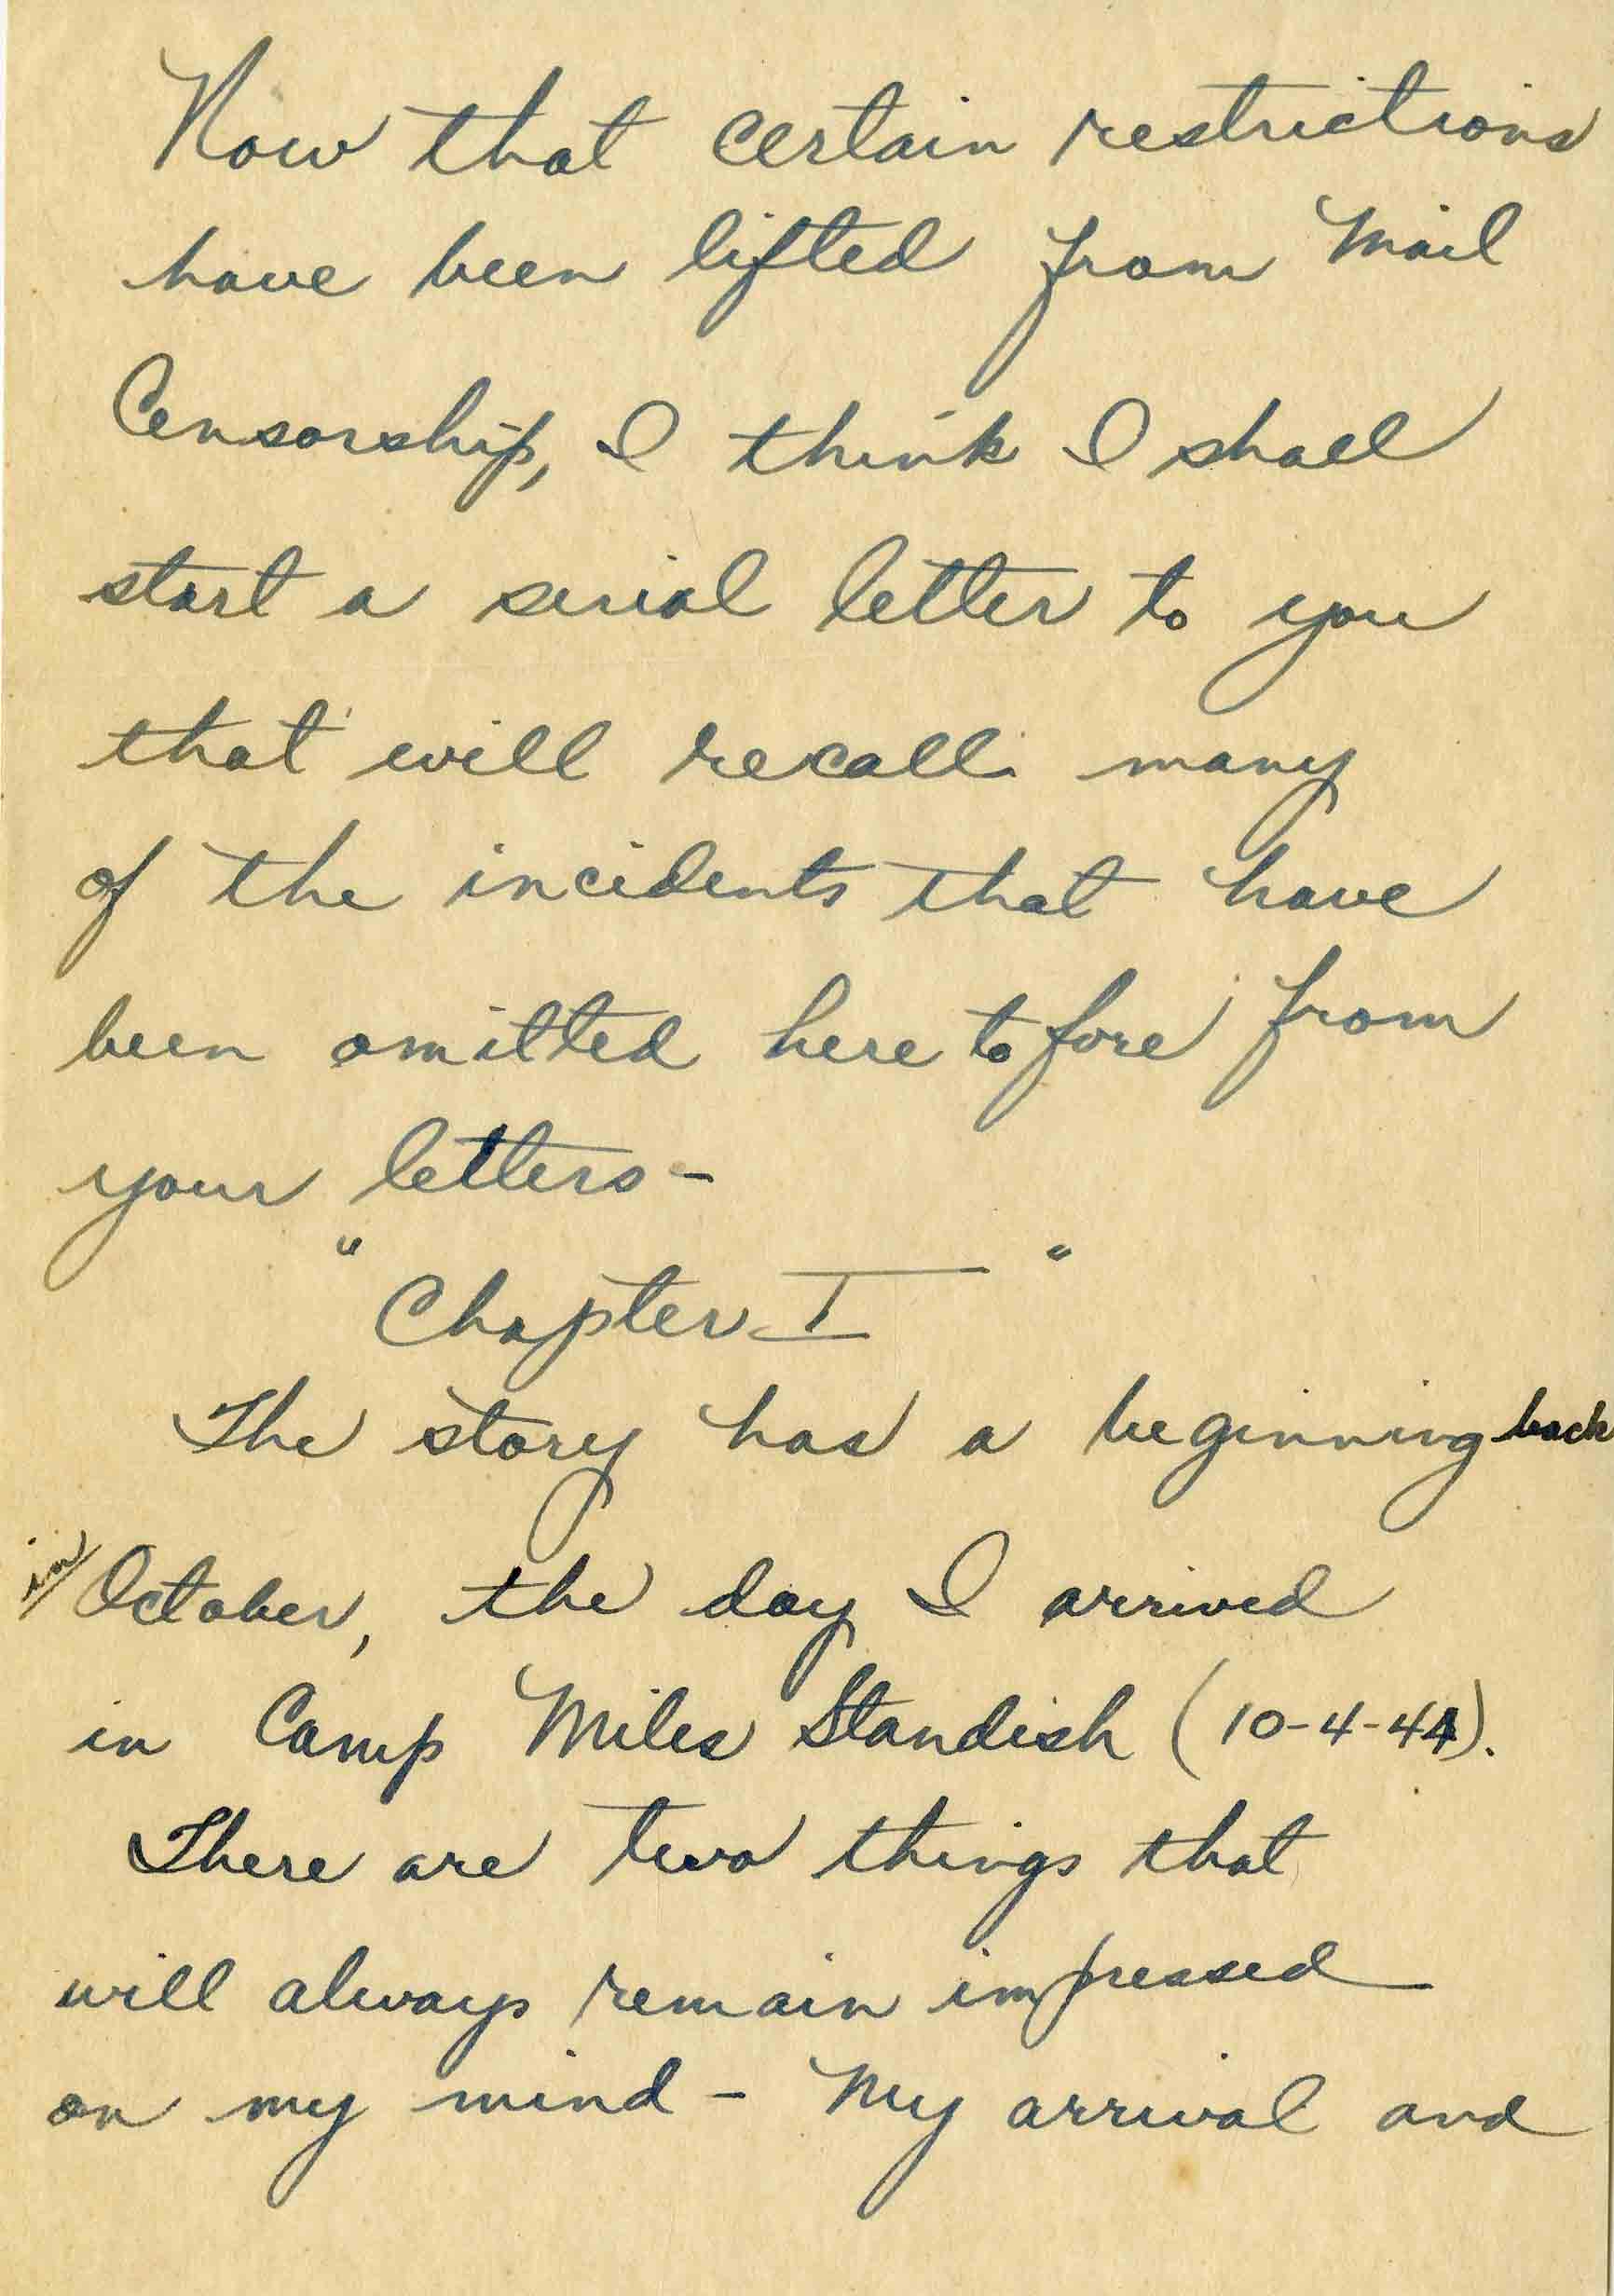 Now that certain restrictions
have been lifted from Mail
Censorship, I think I shall
start a serial letter to you
that will recall many
of the incidents that have
been omitted here to fore from
your letters-
"Chapter I"
The story has a beginning back
in/ October, the day I arrived
in Camp Miles Standish (10-4-44).
There are two things that
will always remain impressed
on my mind - My arrival and